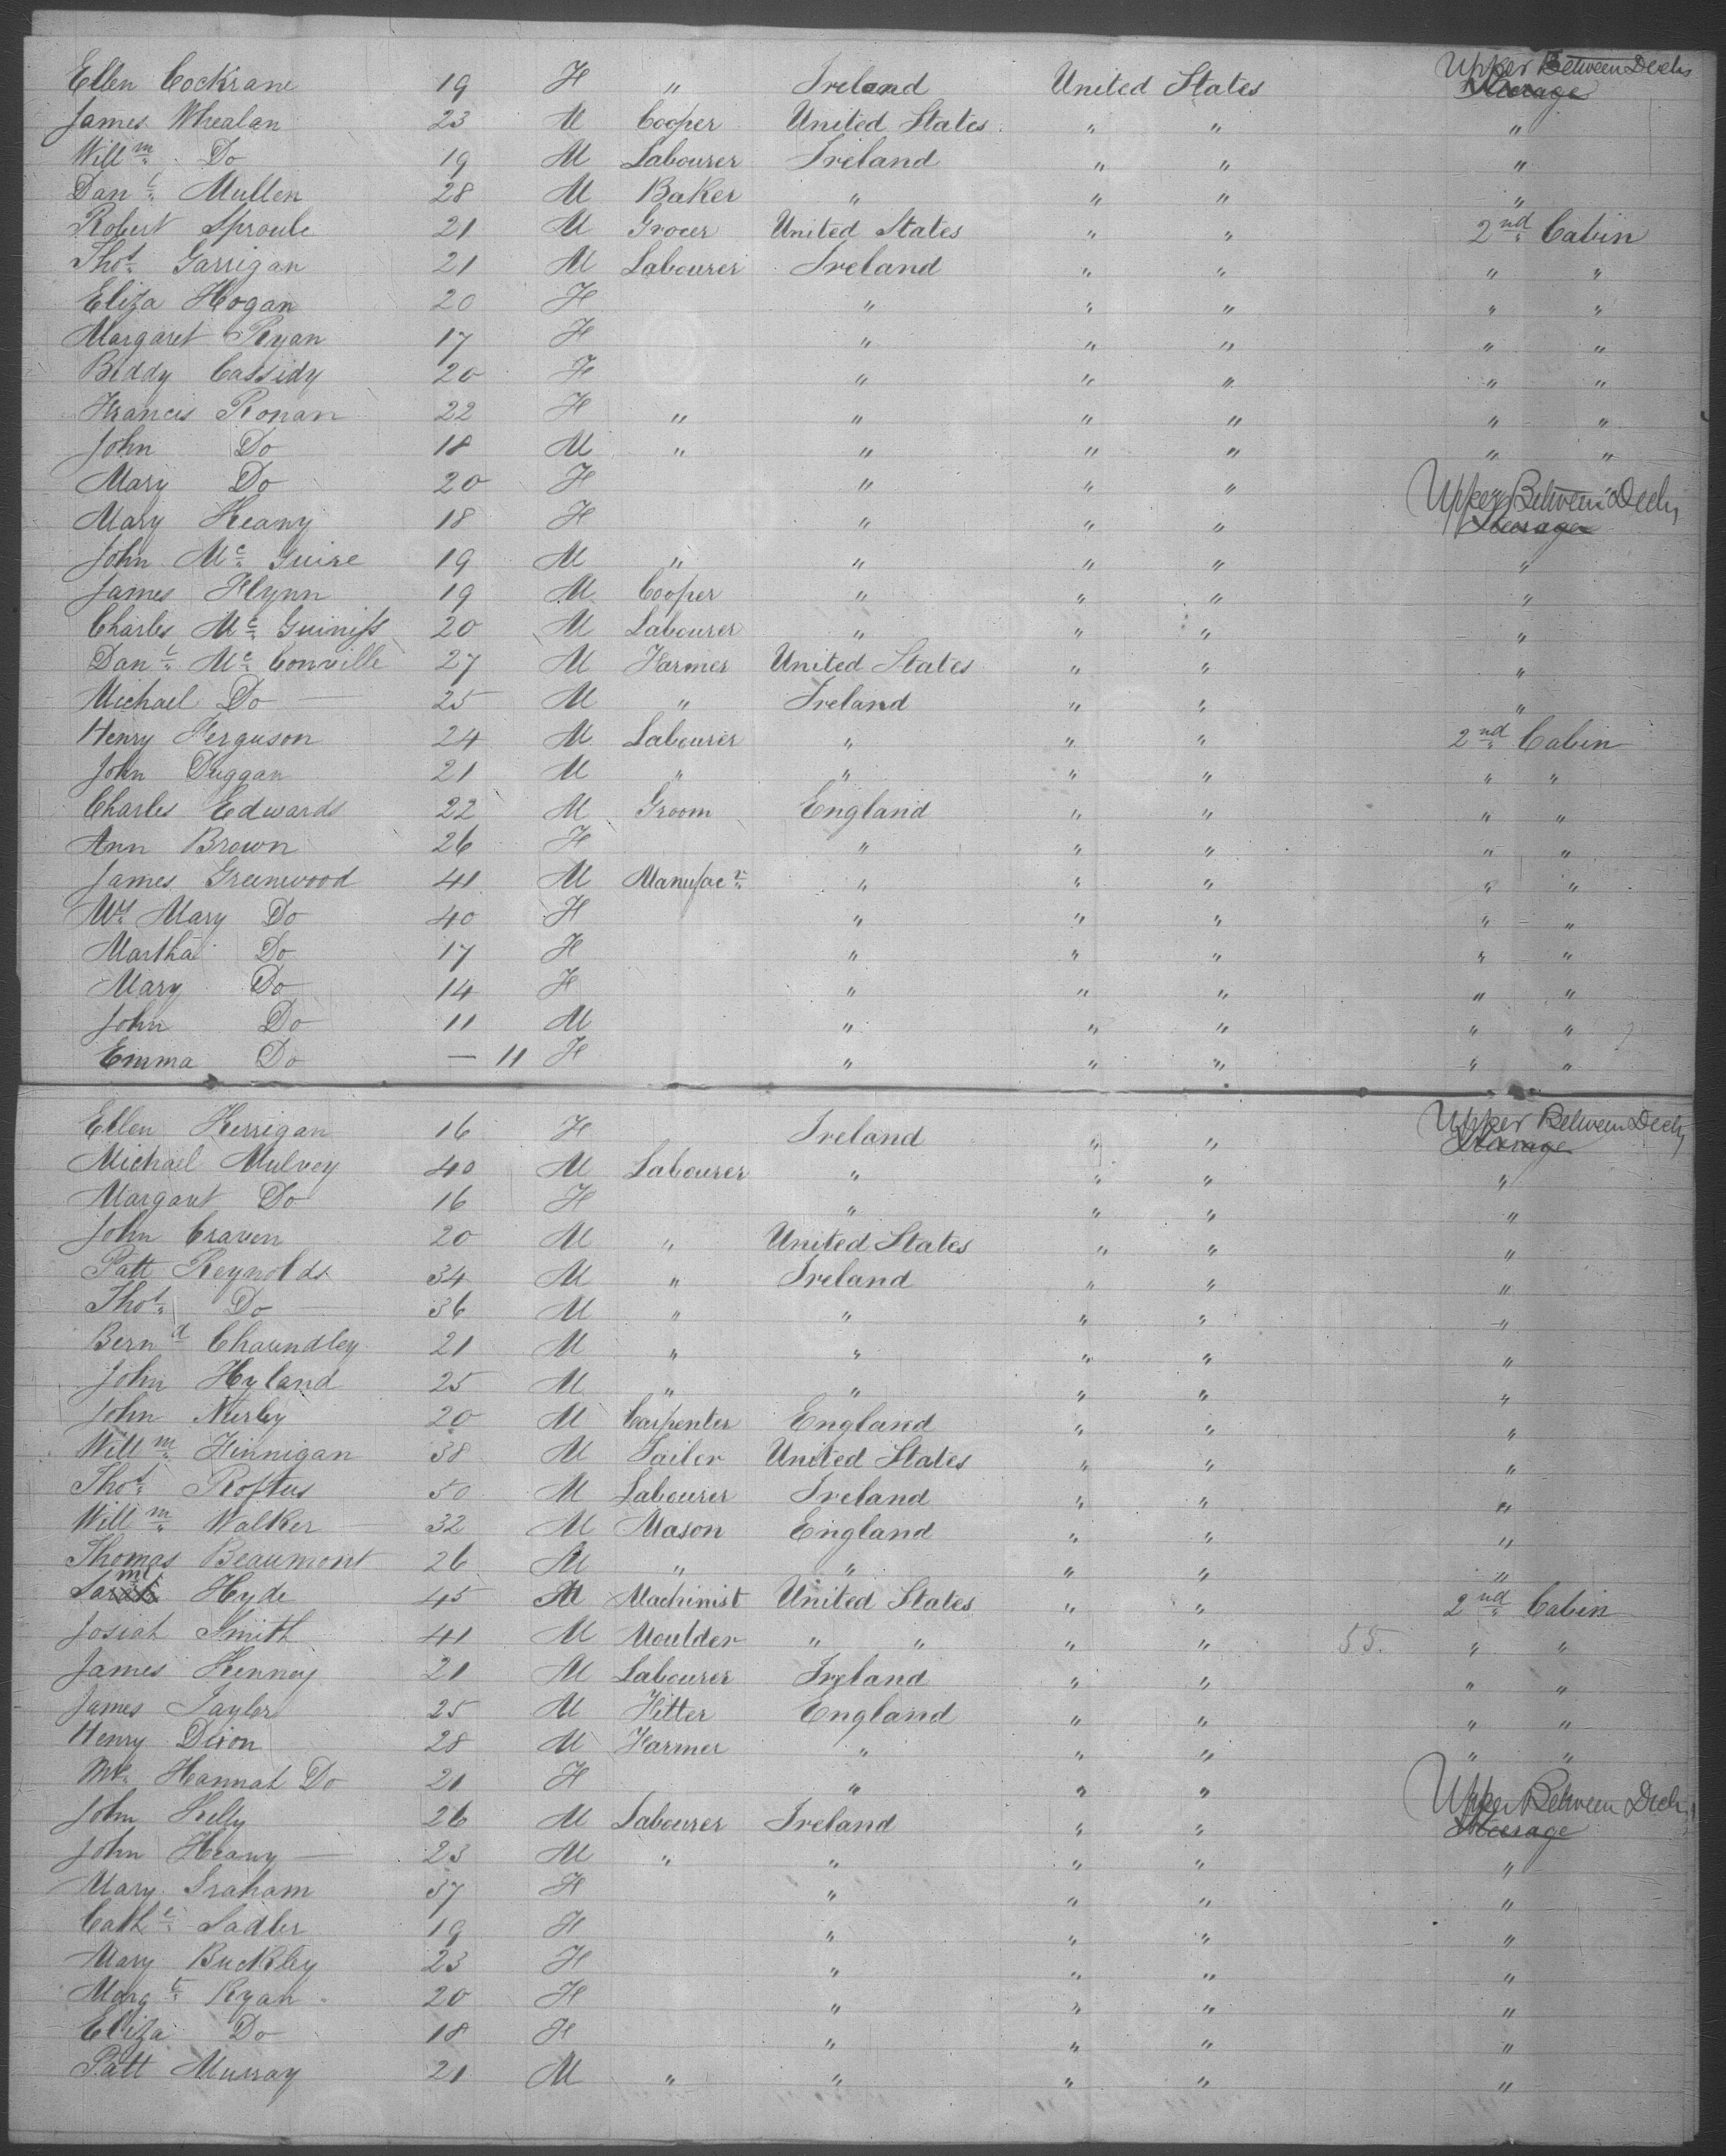 Ellen Cockrane 19 F " Ireland United States Upper Between Decks Steerage
James Whealan 23 M Cooper United States " " "
Willm Do 19 M Labourer Ireland " " "
Danl Mullen 28 M Baker " " " "
Robert Sproule 21 M Grocer United States " " 2nd Cabin
Thos Garrigan 21 M Labourer Ireland " " " "
Eliza Hogan 20 F " " " " "
Margaret Ryan 17 F " " " " "
Biddy Cassidy 20 F " " " " "
Francis Ronan 22 F " " " " " "
John Do 18 M " " " " " "
Mary Do 20 F " " " Upper Between Decks
Mary Heany 18 F " " " Steerage
John Mc Guire 19 M " " " " "
James Flynn 19 M Cooper " " " "
Charles Mc Guiniss 20 M Labourer " " " "
Danl Mc Conville 27 M Farmer United States " " "
Michael Do 25 M " Ireland " " "
Henry Ferguson 24 M Labourer " " " 2nd Cabin
John Duggan 21 M " " " " " "
Charles Edwards 22 M Groom England " " " "
Ann Brown 26 F " " " " "
James Greenwood 41 M Manufacr " " " " "
Mrs Mary Do 40 F " " " " "
Martha Do 17 F " " " " "
Mary Do 14 F " " " " "
John Do 11 M " " " " "
Emma Do — 11 F " " " " "
Ellen Kerrigan 16 F Ireland " " Upper Between Decks Steerage
Michael Mulvey 40 M Labourer " " " "
Margaret Do 16 F " " " "
John Craven 20 M " United States " " "
Patt Reynolds 34 M " Ireland " " "
Thos Do 36 M " " " " "
Bernd Chaundley 21 M " " " " "
John Hyland 25 M " " " " "
John 20 M Carpenter England " " "
Willm Finnigan 38 M Tailor United States " " "
Thos Roftus 50 M Labourer Ireland " " "
Willm Walker 32 M Mason England " " "
Thomas Beaumont 26 M " " " " "
Saml Hyde 45 M Machinist United States " " 2nd Cabin
Josiah Smith 41 M Moulder " " " " 55. " "
James Kenney 21 M Labourer Ireland " " " "
James Taylor 25 M Fitter England " " " "
Henry Dixon 28 M Farmer " " " " "
Mrs Hannah Do 21 F " " " Upper Between Decks
John Kelly 26 M Labourer Ireland " " Steerage
John Heany 23 M " " " " "
Mary Graham 37 F " " " "
Cathe Sadler 19 F " " " "
Mary Buckley 23 F " " " "
Margt Ryan 20 F " " " "
Eliza Do 18 F " " " "
Patt Murray 21 M " " " " "